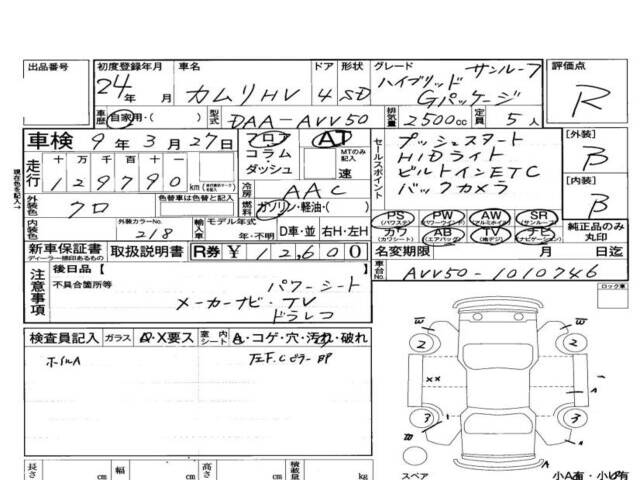 出品番号
初度登録年月 24年 月
車名 カムリHV
ドア 4
形状 SD
グレード サンルーフ
ハイブリッド
Gパッケージ
評価点 R
車歴 自家用・( )
型式 DAA-AVV50
排気量 2500cc
定員 5人
車検 9年3月27日
フロア AT
コラム
ダッシュ
MTのみ記入
速
セールスポイント
プッシュスタート
HIDライト
ビルトインETC
バックカメラ
[外装] B
[内装] B
現在色を記入
走行 十万千百十一
129790 km
冷房 AAC
外装色 クロ
色替車は色替と記入
燃料 ガソリン・軽油・( )
内装色
外装カラーNo. 218
輸入車 モデル年式
年・不明
D車・並 右H・左H
PS (パワステ)
PW (パワーウインドウ)
AW (アルミホイル)
SR (サンルーフ)
カワ (カワシート)
AB (エアバッグ)
TV (地デジ)
ナビ (ナビゲーション)
純正品のみ
丸印
新車保証書
ディーラー捺印あるもの
取扱説明書
R券 ¥12,600
名変期限 月 日迄
車台No. AVV50-1010746
注意事項
後日品[ ]
不具合箇所等
パワーシート
メーカーナビ・TV
ドラレコ
ロック車
検査員記入 ガラス A・X要ス
室内シート A・コゲ・穴・汚れ・破れ
ホイルA
左F.Cピラー凹
W W
2 2
XX
A
3 3
W
A
スペア
小A有・小U有
長さ cm
幅 cm
高さ cm
積載量 kg